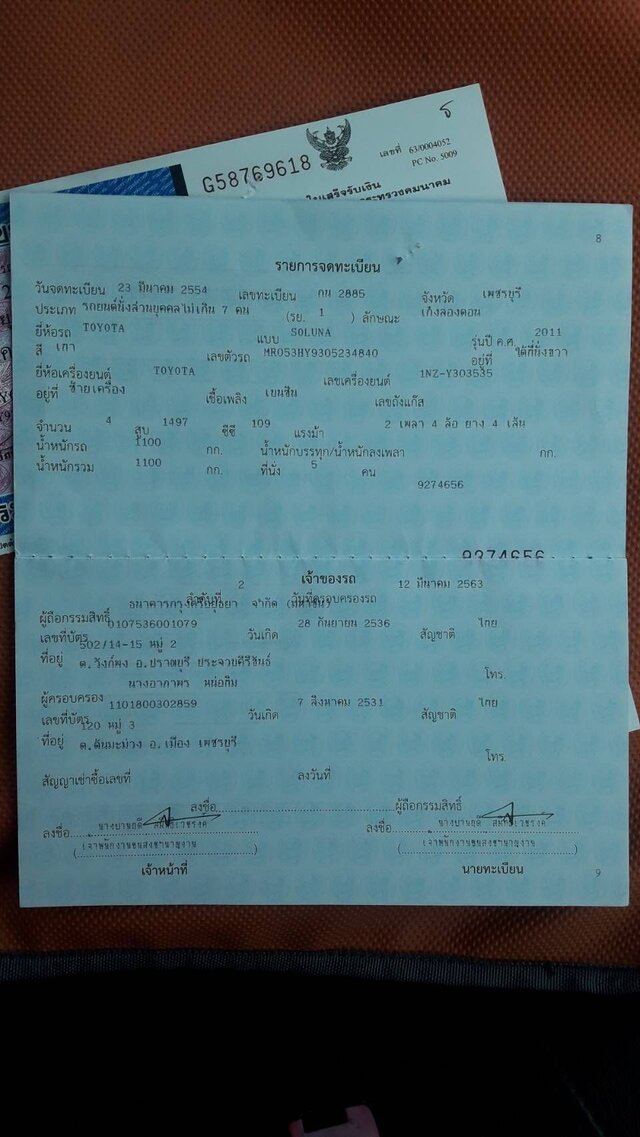 ธ
G58769618
เลขที่ 63/0004052
PC No. 5009
ใบเสร็จรับเงิน
กระทรวงคมนาคม
8
รายการจดทะเบียน
วันจดทะเบียน 23 มีนาคม 2554 เลขทะเบียน กน 2885 จังหวัด เพชรบุรี
ประเภท รถยนต์นั่งส่วนบุคคลไม่เกิน 7 คน (รย. 1 ) ลักษณะ เก๋งสองตอน
ยี่ห้อรถ TOYOTA แบบ SOLUNA รุ่นปี ค.ศ. 2011
สี เทา เลขตัวรถ MR053HY9305234840 อยู่ที่ ใต้ที่นั่งขวา
ยี่ห้อเครื่องยนต์ TOYOTA เลขเครื่องยนต์ 1NZ-Y303535
อยู่ที่ ซ้ายเครื่อง เชื้อเพลิง เบนซิน เลขถังแก๊ส
จำนวน 4 สูบ 1497 ซีซี 109 แรงม้า 2 เพลา 4 ล้อ ยาง 4 เส้น
น้ำหนักรถ 1100 กก. น้ำหนักบรรทุก/น้ำหนักลงเพลา กก.
น้ำหนักรวม 1100 กก. ที่นั่ง 5 คน
9274656
9274656
เจ้าของรถ
ลำดับที่ 2 วันที่ครอบครองรถ 12 มีนาคม 2563
ผู้ถือกรรมสิทธิ์ ธนาคารกรุงศรีอยุธยา จำกัด (มหาชน)
เลขที่บัตร 0107536001079 วันเกิด 28 กันยายน 2536 สัญชาติ ไทย
ที่อยู่ 502/14-15 หมู่ 2
ต.วังก์พง อ.ปราณบุรี ประจวบคีรีขันธ์ โทร.
ผู้ครอบครอง นางอาภาพร
เลขที่บัตร 1101800302859 วันเกิด 7 สิงหาคม 2531 สัญชาติ ไทย
ที่อยู่ 120 หมู่ 3
ต.ต้นมะม่วง อ.เมือง เพชรบุรี โทร.
สัญญาเช่าซื้อเลขที่ ลงวันที่
ลงชื่อ ผู้ถือกรรมสิทธิ์
ลงชื่อ ลงชื่อ
(เจ้าพนักงานขนส่งชำนาญงาน) (เจ้าพนักงานขนส่งชำนาญงาน)
เจ้าหน้าที่ นายทะเบียน
9